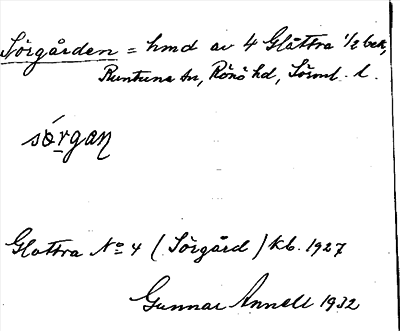 Sörgården = hmd av 4 Glåttra 1/2 bek,
Runtuna sn, Rönö hd, Sörml. l.
sörgaṇ
Glottra No 4 (Sörgård) Kb. 1927
Gunnar Annell 1932